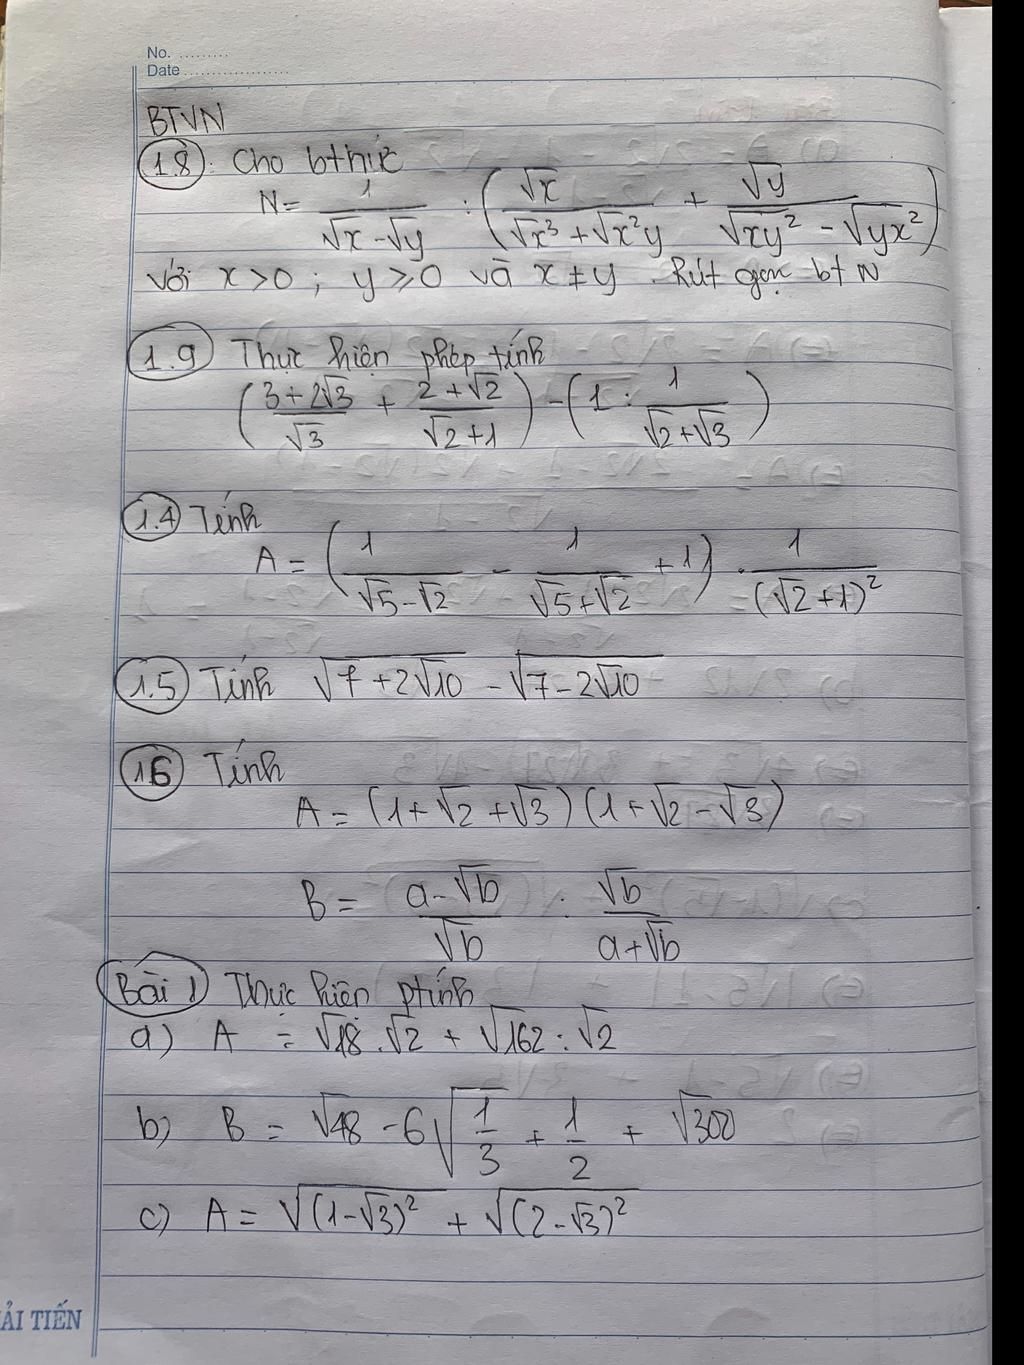 No. .........
Date ...................
BTVN
1.8 : Cho bthức
N = 1/(√x - √y) : (√x/(√x³ + √x²y) + √y/(√xy² - √yx²))
Với x > 0 ; y ≥ 0 và x ≠ y . Rút gọn bt N
1.9 Thực hiện phép tính
((3 + 2√3)/√3 + (2 + √2)/(√2 + 1)) - (1 : 1/(√2 + √3))
1.4 Tính
A = (1/(√5 - √2) - 1/(√5 + √2) + 1) . 1/(√2 + 1)²
1.5 Tính √(7 + 2√10) - √(7 - 2√10)
1.6 Tính
A = (1 + √2 + √3)(1 + √2 - √3)
B = (a - √b)/√b : √b/(a + √b)
Bài 1 Thực hiện ptính
a) A = √18 . √2 + √162 : √2
b) B = √48 - 6√(1/3) + 1/2 + √300
c) A = √((1 - √3)²) + √((2 - √3)²)
ẢI TIẾN